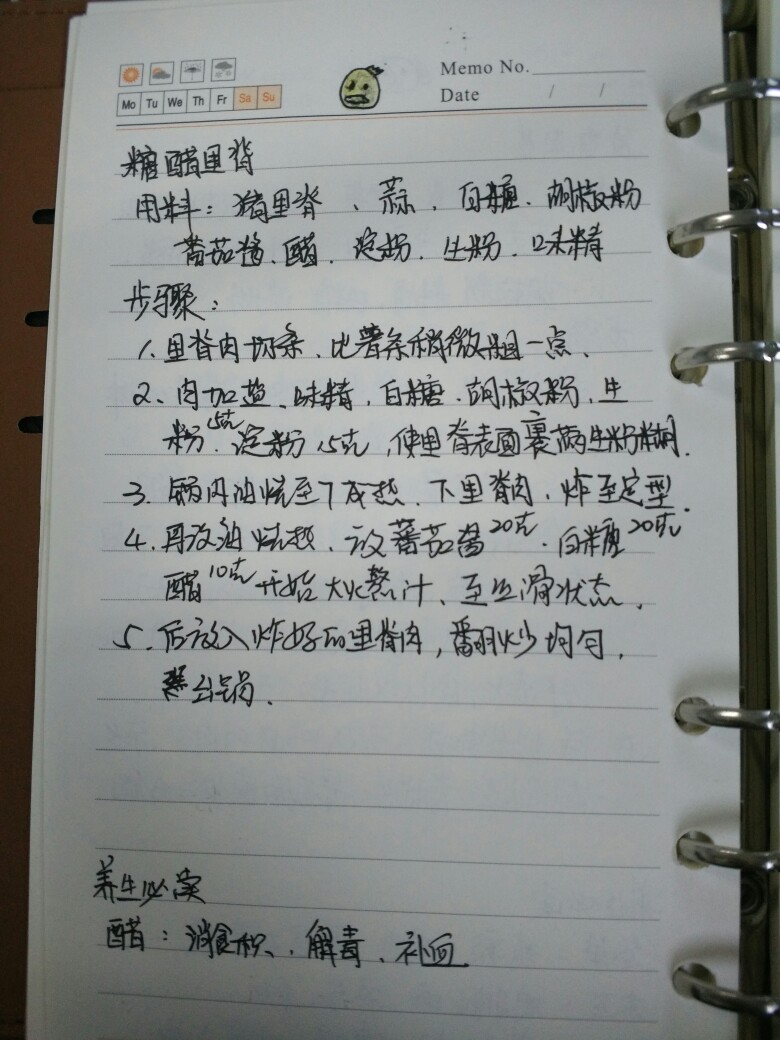 Memo No.
Mo Tu We Th Fr Sa Su
Date / /
糖醋里脊
用料：猪里脊、蒜、白糖、胡椒粉
蕃茄酱、醋、淀粉、生粉、味精
步骤：
1、里脊肉切条、比薯条稍微粗一点、
2、肉加盐、味精、白糖、胡椒粉、生
粉5克、淀粉15克，使里脊表面裹满生粉糊．
3、锅内油烧至7成热、下里脊肉，炸至定型．
4、再次油烧热、放蕃茄酱20克、白糖20克
醋10克开始大火熬汁、至丝滑状态、
5、后放入炸好的里脊肉，翻炒均匀，
出锅、
养生必读
醋：消食积、解毒、补血